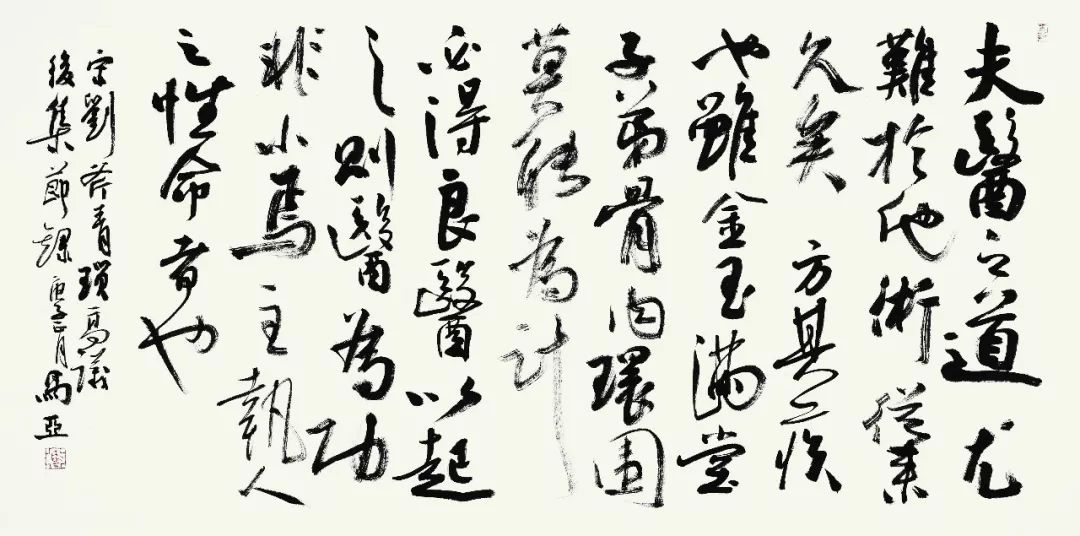 夫醫之道尤
難於他術從來
久矣方其疾
也雖金玉滿堂
子弟骨肉環圍
莫能為計
必得良醫以起
之則醫為功
非小焉主執人
之性命者也
宋劉斧青瑣高議
後集節錄庚子月馬亞